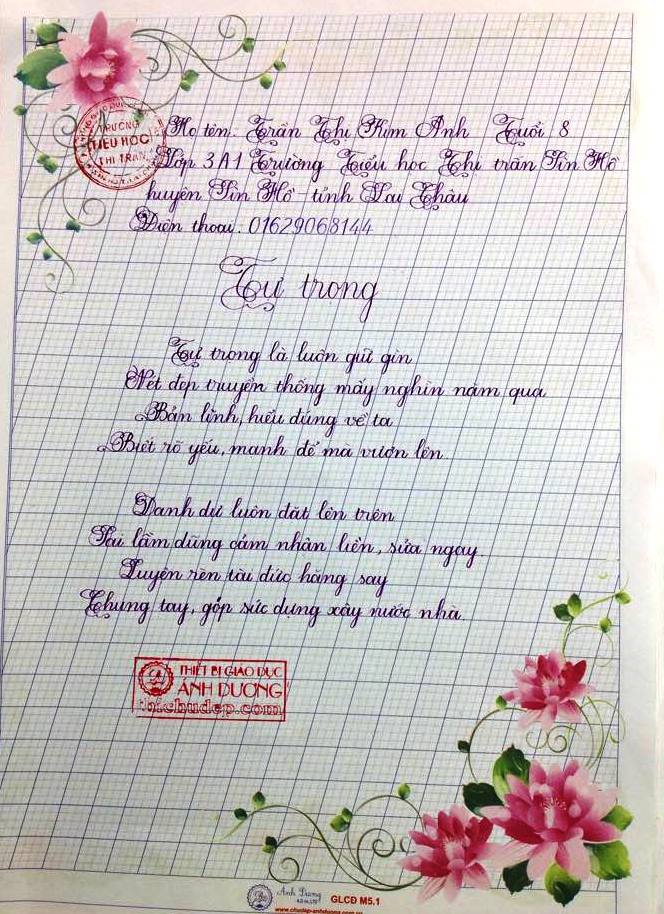 TRƯỜNG
TIỂU HỌC
THỊ TRẤN
Họ tên: Trần Thị Kim Ánh Tuổi 8
Lớp 3A1 Trường Tiểu học Thị trấn Sìn Hồ
huyện Sìn Hồ - tỉnh Lai Châu
Điện thoại: 01629068144
Tự trọng
Tự trọng là luôn giữ gìn
Nét đẹp truyền thống mấy nghìn năm qua
Bản lĩnh, hiểu đúng về ta
Biết rõ yếu, mạnh để mà vươn lên
Danh dự luôn đặt lên trên
Sai lầm dũng cảm nhận liền, sửa ngay.
Luyện rèn tài đức hăng say
Chung tay, góp sức dựng xây nước nhà.
THIẾT BỊ GIÁO DỤC
ÁNH DƯƠNG
thichudep.com
Ánh Dương
GLCĐ M5.1